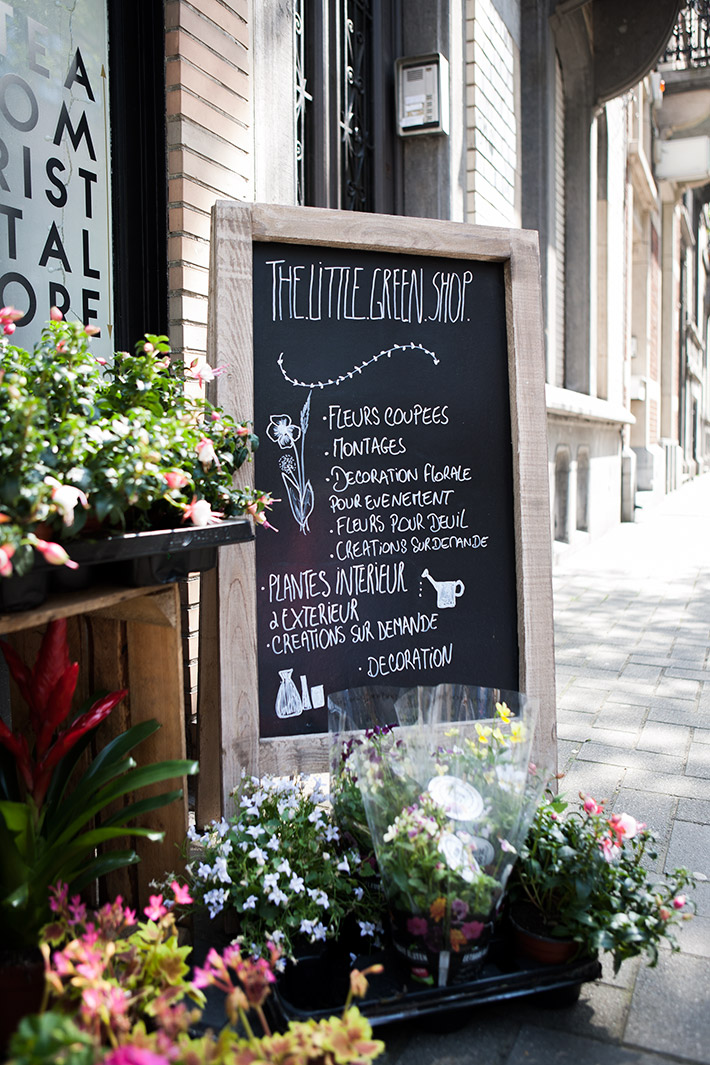 TEA
OM
RIST
TAL
ORE
THE.LITTLE.GREEN.SHOP.
·FLEURS COUPEES
·MONTAGES
·DECORATION FLORALE
POUR EVENEMENT
·FLEURS POUR DEUIL
·CREATIONS SUR DEMANDE
·PLANTES INTERIEUR
& EXTERIEUR
·CREATIONS SUR DEMANDE
·DECORATION